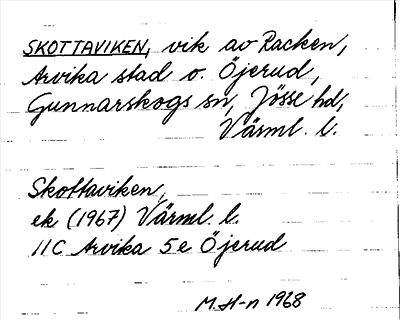 SKOTTAVIKEN, vik av Racken,
Arvika stad o. Öjerud,
Gunnarskogs sn, Jösse hd,
Värml. l.
Skottaviken,
ek (1967) Värml. l.
11C Arvika 5e Öjerud
M.H-n 1968